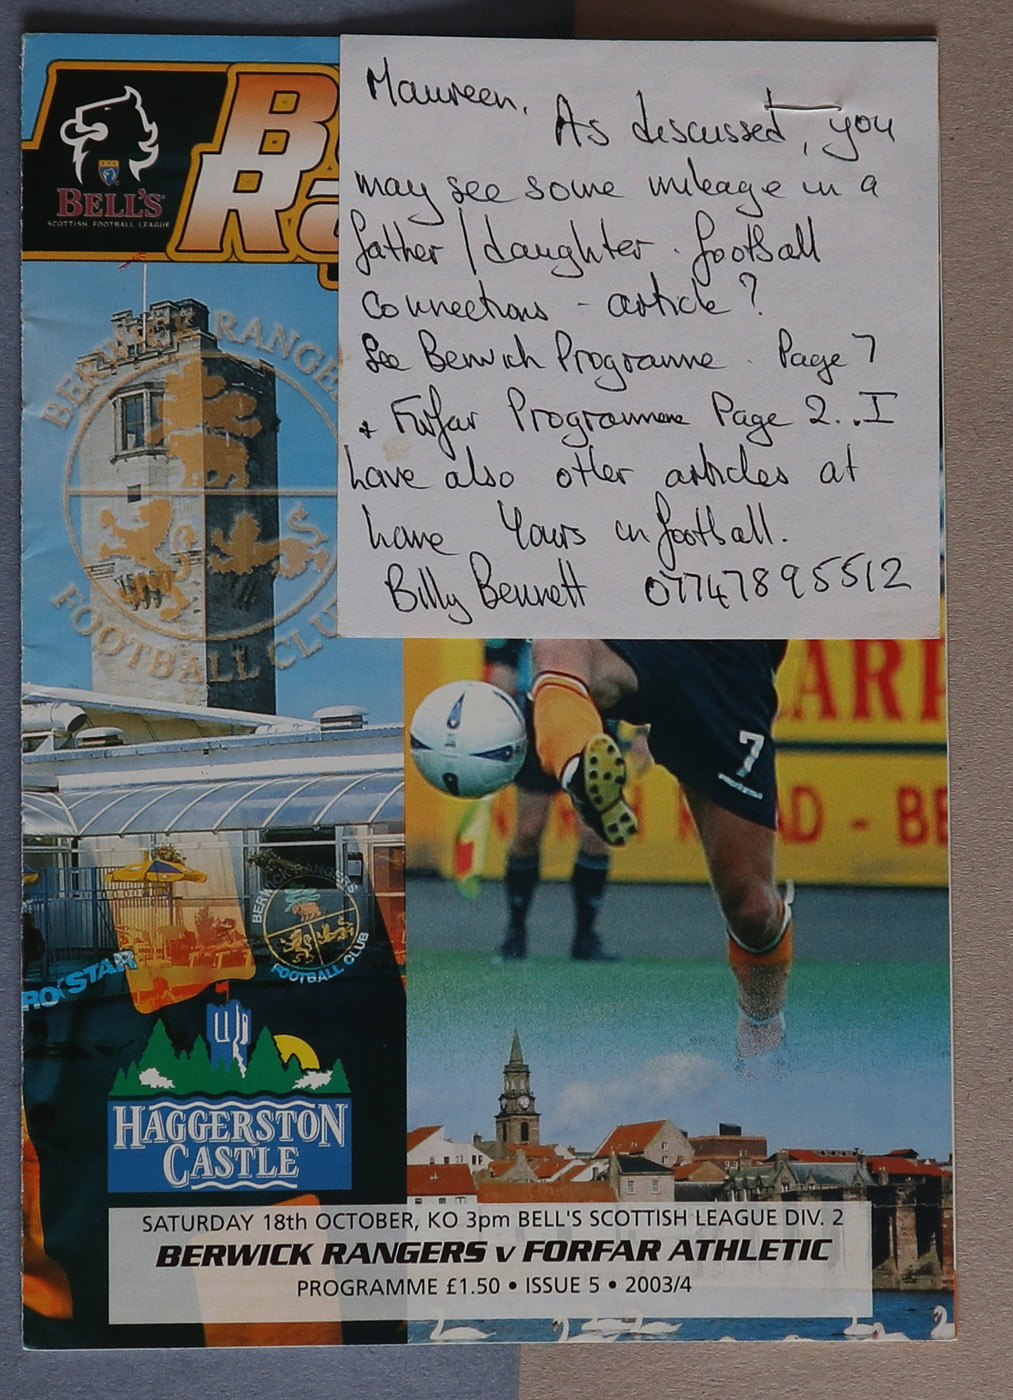 Maureen.
As discussed, you
may see some mileage in a
father / daughter . football
connections - article ?
See Berwick Programme . Page 7
+ Forfar Programme Page 2.. I
have also other articles at
home Yours in football.
Billy Bennett 07747895512
BELL'S
SCOTTISH FOOTBALL LEAGUE
B
Ra
BERWICK RANGE
FOOTBALL CLU
7
ARR
AD - BE
BERWICK RANGERS
FOOTBALL CLUB
ROKSTAR
HAGGERSTON
CASTLE
SATURDAY 18th OCTOBER, KO 3pm BELL'S SCOTTISH LEAGUE DIV. 2
BERWICK RANGERS v FORFAR ATHLETIC
PROGRAMME £1.50 • ISSUE 5 • 2003/4